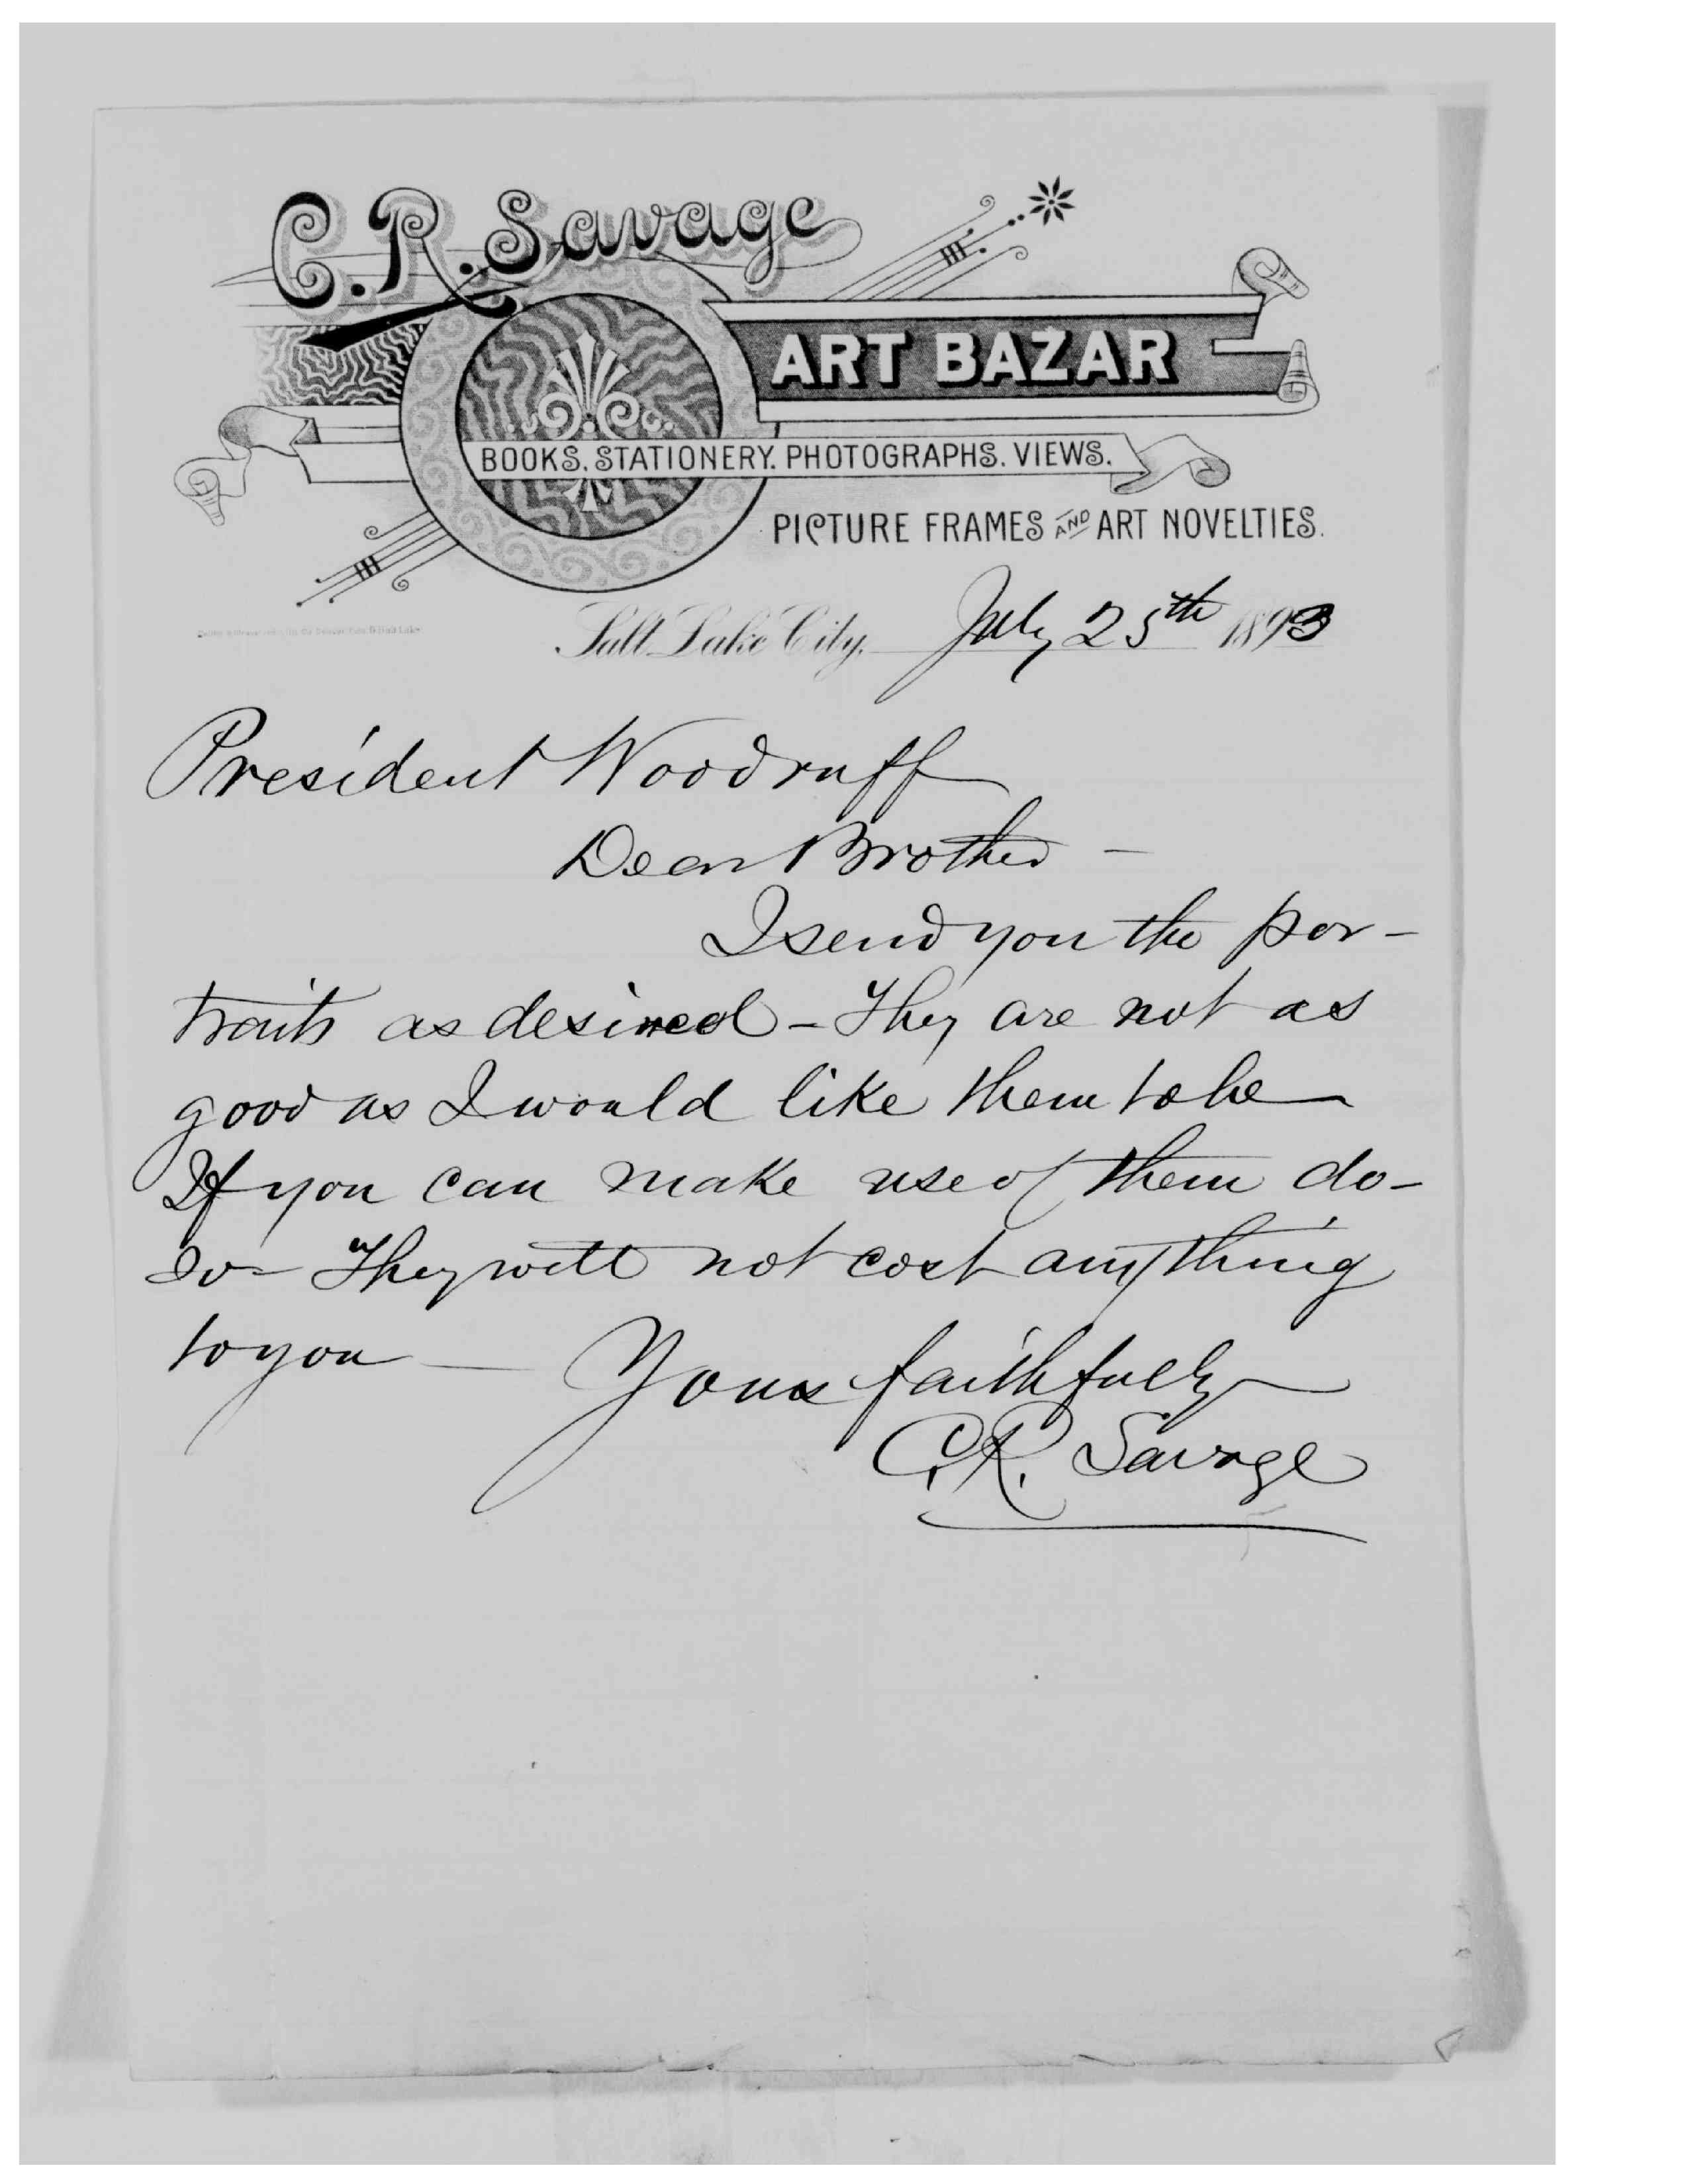 C. R. Savage
ART BAZAR
BOOKS. STATIONERY. PHOTOGRAPHS. VIEWS.
PICTURE FRAMES AND ART NOVELTIES.
Salt Lake City, July 25th 1893
President Woodruff
Dear Brother —
I send you the por-
traits as desired - They are not as
good as I would like them to be
If you can make use of them do-
so - They will not cost anything
to you —
Yours faithfully
C.R. Savage